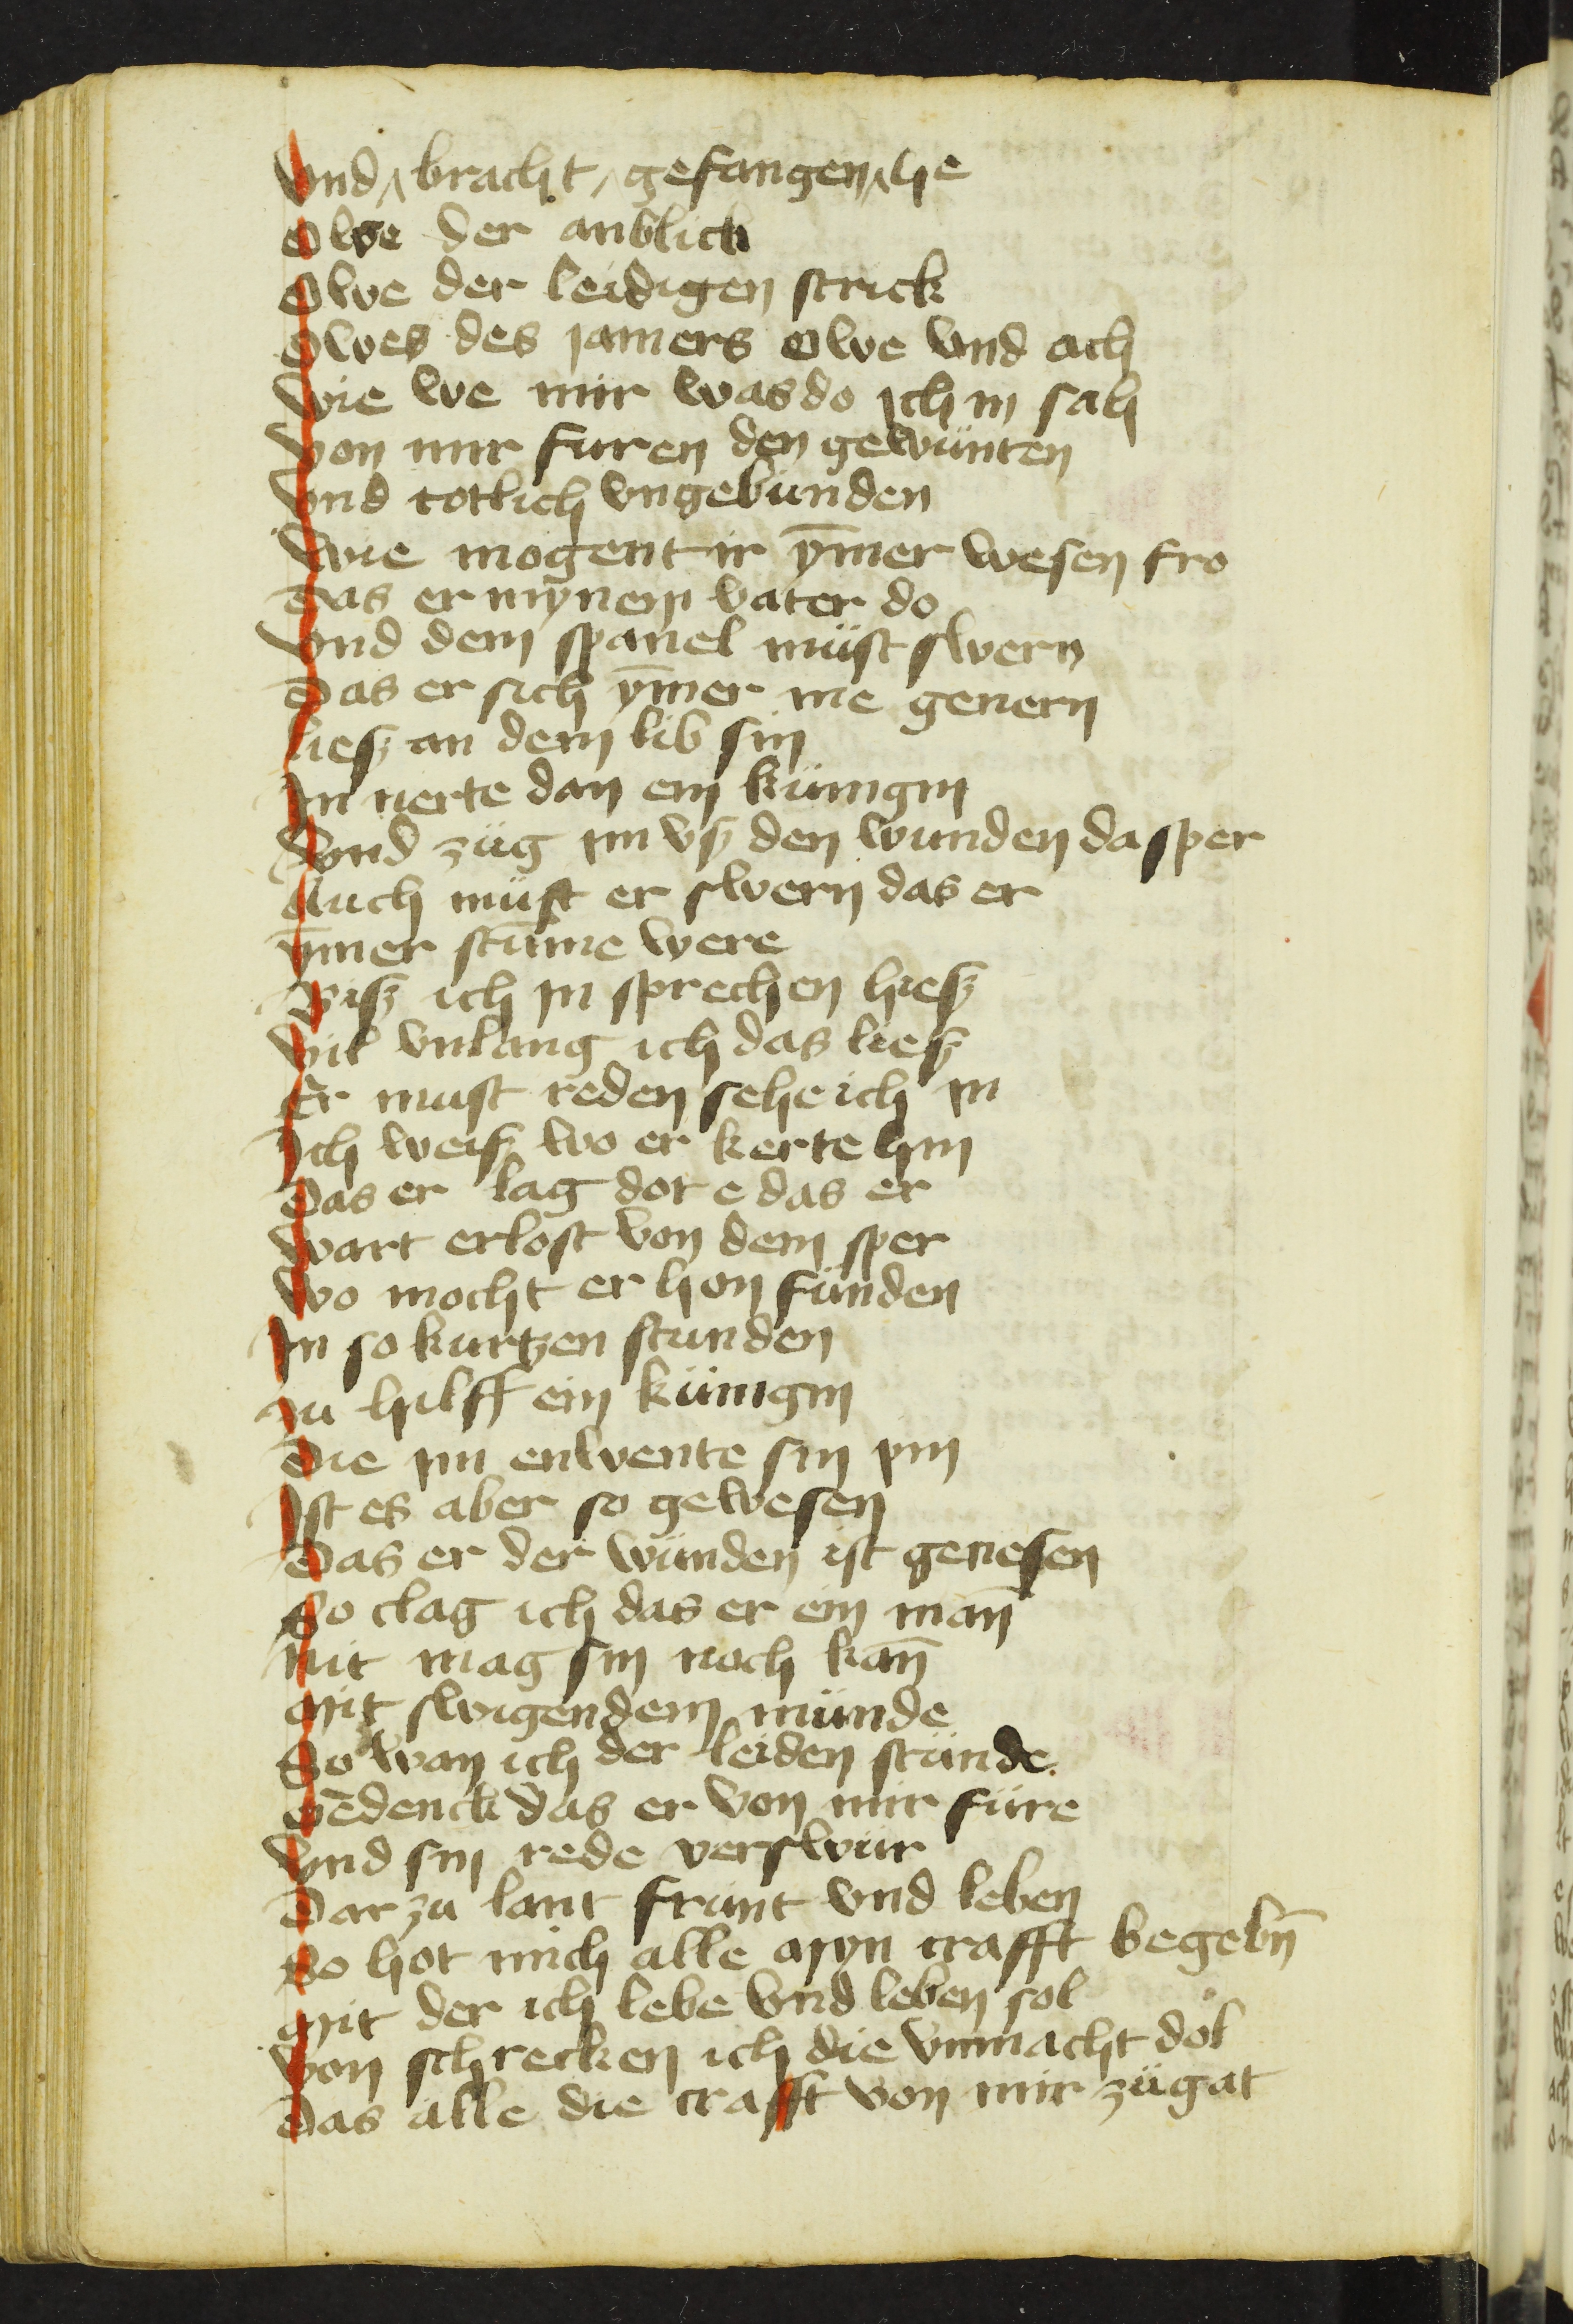 Vnd bracht gefangen he
Owe der anblick
Owe der leidigen strick
Owes des jamers owe vnd ach
Wie we mir was do ich in sah
Von mir furen den gewünten
Vnd totlich vngebunden
Wie mogent ir ym̄er wesen fro
Das er mynem vater do
Vnd dem spanel müst swern
Das er sich ym̄er me genern
liesz an dem lib sin
In nerte dan ein künigin
Vnd züg im vsz den wunden da sper
Auch müst er swern das er
ym̄er stum̄e were
Bisz ich in sprechen hiesz
Vil vnlang ich das liesz
Er must reden sehe ich in
Ich weisz wo er kerte hin
Das er lag dot e das er
Wart erlost von dem sper
Wo mocht er hon fünden
In so kurtzen stunden
zu hilff ein künigin
Die im enwente sin pin
Ist es aber so gewesen
Das er der wünden ist genesen
So clag ich das er ein man̄
nit mag sin noch kan̄
Mit swigendem münde
So wan ich der leiden stünde
Gedenck das er von mir füre
Vnd sin rede verswür
Dar zu lant frünt vnd leben
So hot mich alle myn crafft begebn̄
Mit der ich lebe vnd leben sol
Von schrecken ich die vnmacht dol
Das alle die crafft von mir zügat